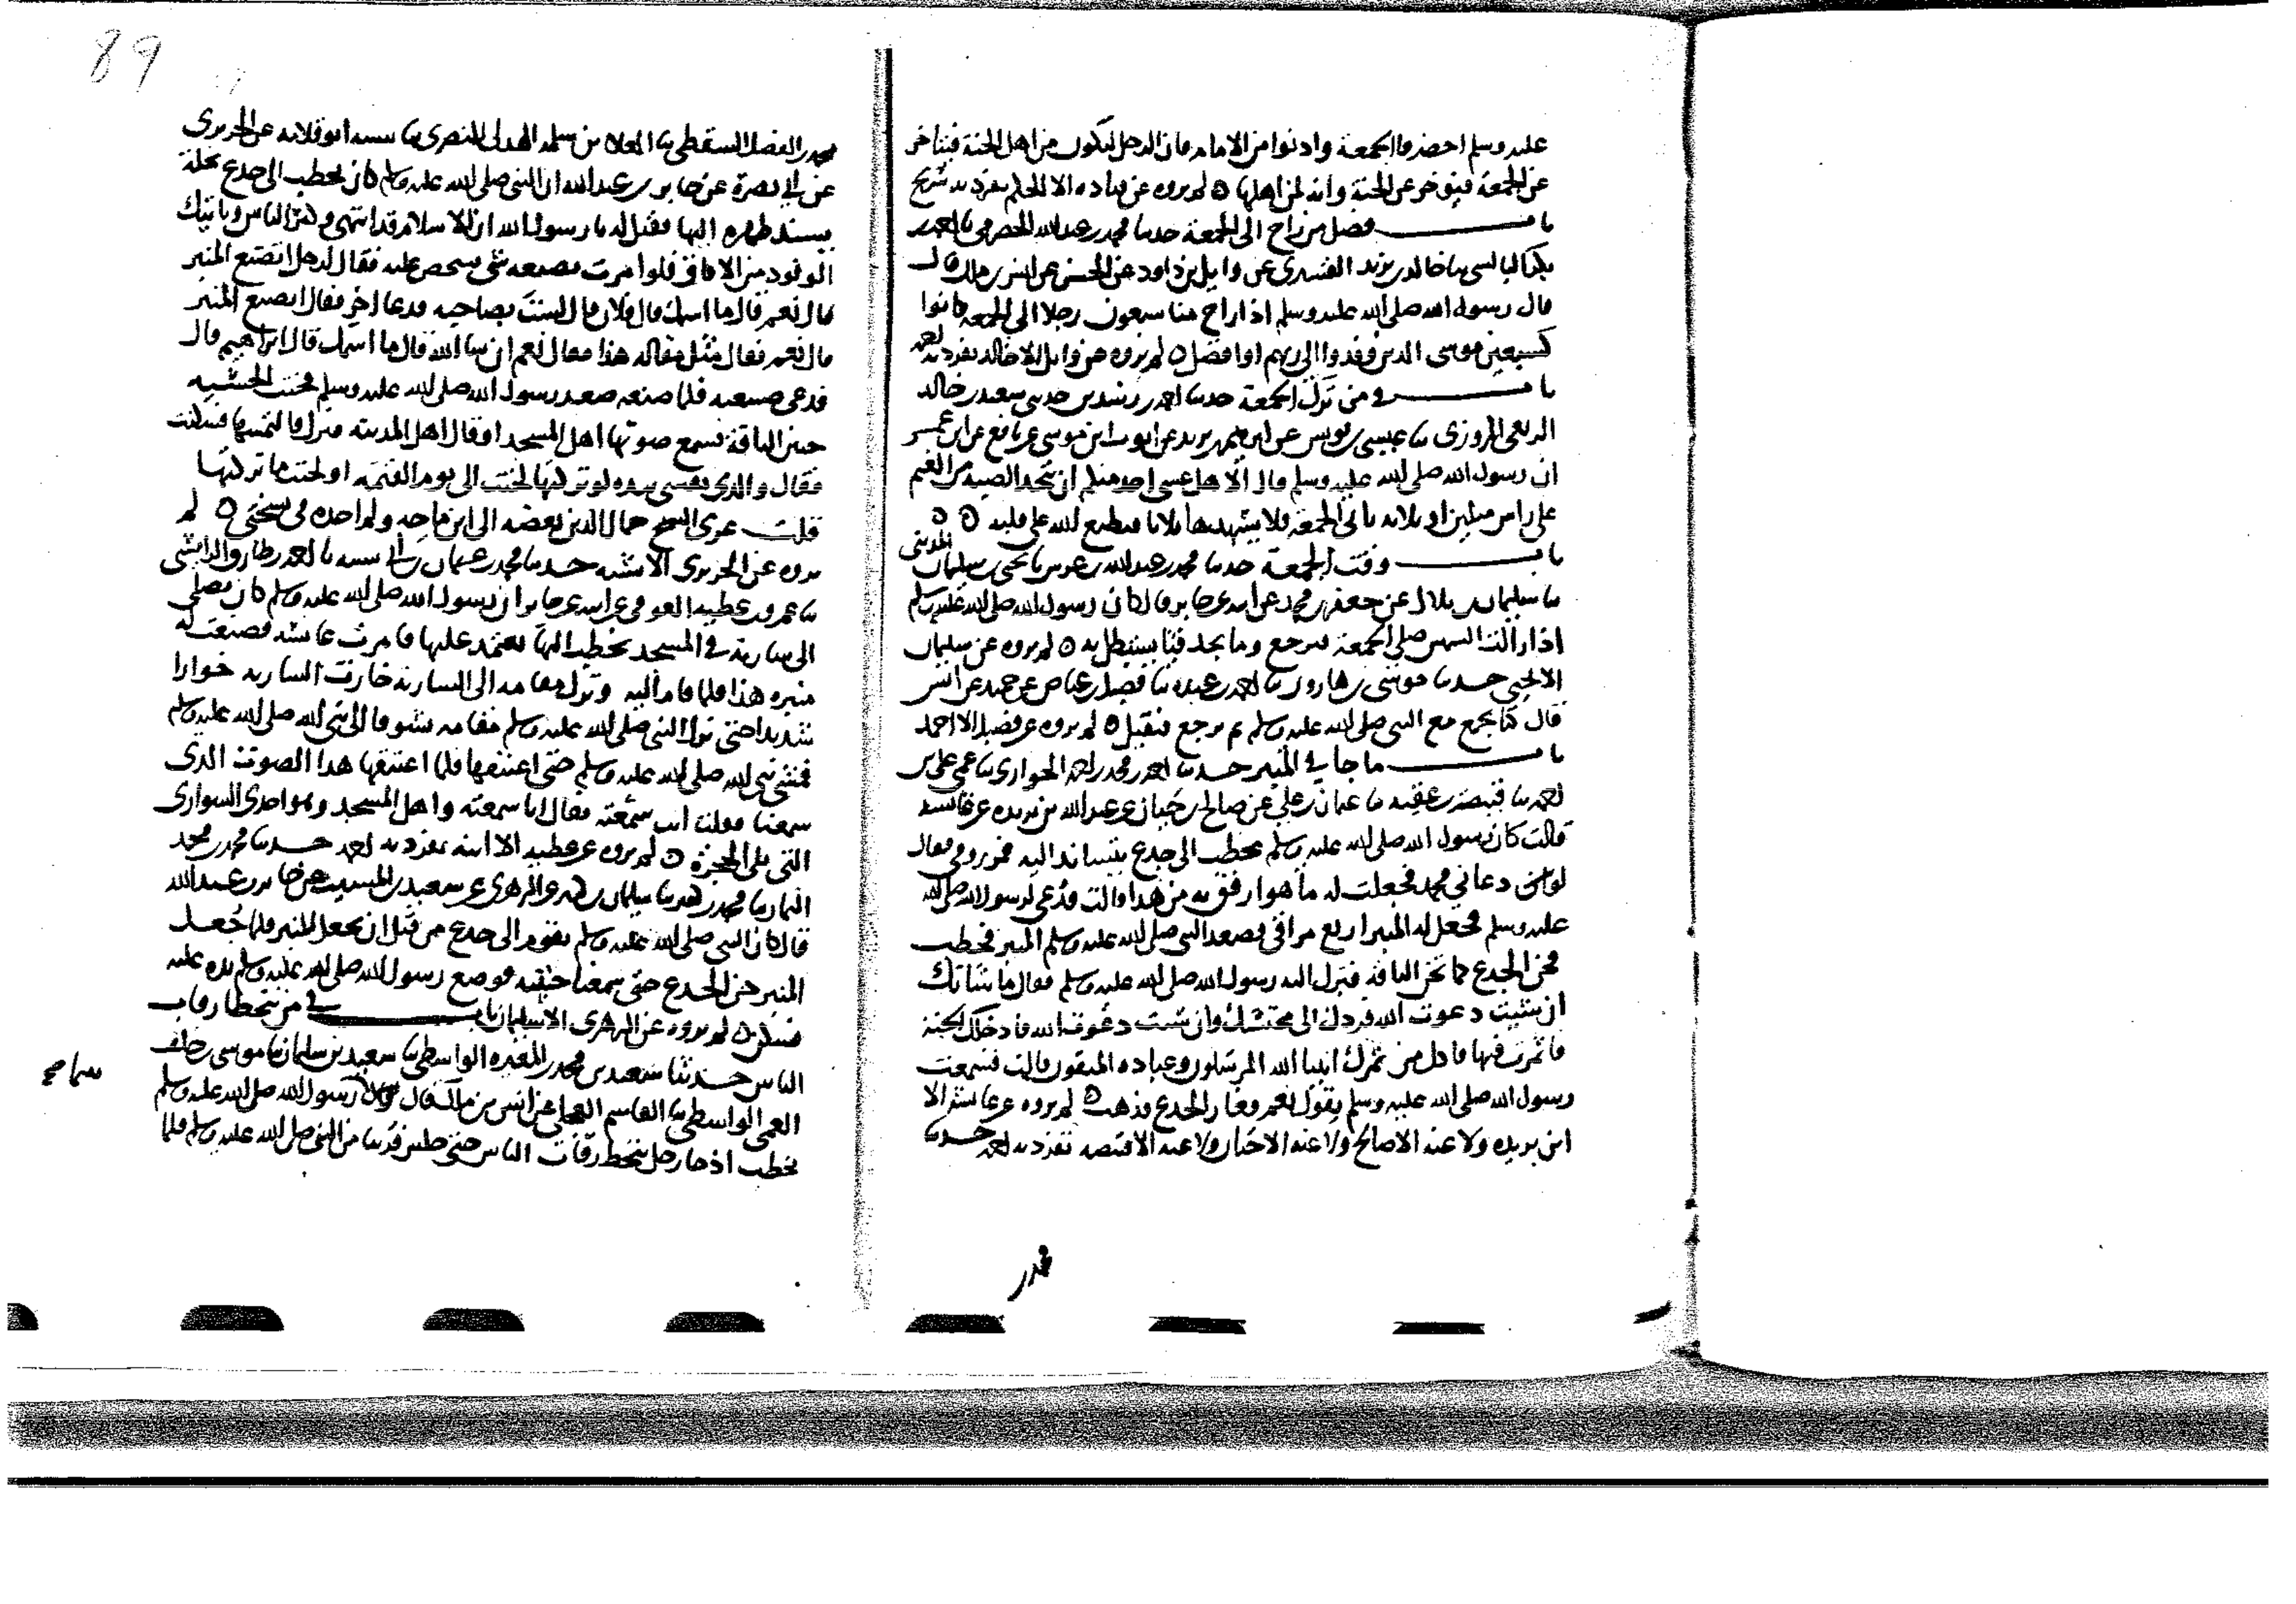 عليه وسلم احضروا الجمعة وادنوا من الامام فان الرجل ليكون من اهل الجنة فيتاخر
عن الجمعة فيوخر عن الجنة وانه لمن اهلها ٥ لم يروه عن قتاده الا الحكم تفرد به شريح
باب فضل من راح الى الجمعة حدثنا محمد بن عبدالله الحضرمي ثنا احمد بن
بكر البالسي ثنا خالد بن يزيد القسري عن وايل بن داود عن الحسن عن انس بن ملك قال
قال رسول الله صلى الله عليه وسلم اذا راح منا سبعون رجلا الى الجمعة كانوا
كسبعين موسى الذين وفدوا الى ربهم او افضل ٥ لم يروه عن وايل الا خالد تفرد به احمد
باب في من ترك الجمعة حدثنا احمد بن رشدين حدثني سعيد بن خالد
الربعي المروزى ثنا عيسى بن يونس عن ابرهيم بن يزيد عن ايوب ابن موسى عن نافع عن ابن عمر
ان رسول الله صلى الله عليه وسلم قال الا هل عسى احد منكم ان يتخذ الصبه من الغنم
على راس ميلين او ثلاثه تاتى الجمعة فلا يشهدها ثلاثا فيطبع الله على قلبه ٥ ٥
باب وقت الجمعة حدثنا محمد بن عبدالله بن عرس ثنا يحيى بن سليمان المديني
ثنا سليمان بن بلال عن جعفر بن محمد عن ابيه عن جابر قال كان رسول الله صلى الله عليه وسلم
اذا زالت الشمس صلى الجمعة فنرجع وما نجد فيئا يستظل به ٥ لم يروه عن سليمان
الا يحيى حدثنا موسى بن هارون ثنا احمد بن عبده ثنا فضيل بن عياض عن حميد عن انس
قال كنا نجمع مع النبي صلى الله عليه وسلم ثم نرجع فنقيل ٥ لم يروه عن فضيل الا احمد
باب ما جا في المنبر حدثنا احمد بن محمد بن احمد الجوارى ثنا عمي علي بن
احمد ثنا قبيصة بن عقبه ثنا حبان بن علي عن صالح بن حيان عن عبدالله بن بريده عن عائشة
قالت كان رسول الله صلى الله عليه وسلم يخطب الى جدع يتساند اليه فمر رومي فقال
لو دعاني محمد فجعلت له ما هو ارفق به من هذا قالت فدعي لرسول الله صلى الله
عليه وسلم فجعل له المنبر اربع مراقي فصعد النبي صلى الله عليه وسلم المنبر فخطب
فحن الجدع كما تحن الناقة فنزل اليه رسول الله صلى الله عليه وسلم فقال ما شانك
ان شيت دعوت الله فردك الى محتشك وان شيت دعوت الله فادخلك الجنة
فاثمرت فيها فاكل من ثمرك انبيا الله المرسلون وعباده المتقون قالت فسمعت
رسول الله صلى الله عليه وسلم يقول نعم وغار الجدع فذهب ٥ لم يروه عن عائشة الا
ابن بريده ولا عنه الا صالح ولا عنه الا حبان ولا عنه الا قبيصه تفرد به احمد حدثنا
محمد بن الفضل السقطي ثنا العلا بن سلمه الهذلى البصرى ثنا شيبه ابو قلابه عن الجريرى
عن ابي نضرة عن جابر بن عبدالله ان النبي صلى الله عليه وسلم كان يخطب الى جدع نخلة
يسند ظهره اليها فقيل له يا رسول الله ان الاسلام قد انتهى وكثر الناس وياتيك
الوفود من الافاق فلو امرت بصنعه شي تشخص عليه فقال لرجل اتصنع المنبر
قال نعم قال ما اسمك قال فلان قال لست بصاحبه فدعا اخر فقال اتصنع المنبر
قال نعم فقال مثل مقاله هذا فقال نعم ان شا الله قال ما اسمك قال ابراهيم قال
فدعى صنعه فلما صنعه صعد رسول الله صلى الله عليه وسلم فحنت الخشبه
حنين الناقة فسمع صوتها اهل المسجد او قال اهل المدينه فنزل فالتمسها فسكنت
فقال والذى نفسى بيده لو تركتها لحنت الى يوم القيمه او لحنت ما تركتها
قلت عزى الشيخ جمال الدين بعضه الى ابن ماجه ولم اجده فى نسختي ٥ لم
يروه عن الجريرى الا شيبه حدثنا محمد بن عثمان بن ابي شيبه ثنا احمد بن طارق الوابشى
ثنا عمرو بن عطيه العوفي عن ابيه عن جابر ان رسول الله صلى الله عليه وسلم كان يصلى
الى سارية في المسجد يخطب اليها يعتمد عليها فامرت عائشه فصنعت له
منبره هذا فلما قام اليه وترك مقامه الى الساريه خارت الساريه خوارا
شديدا حتى ترك النبي صلى الله عليه وسلم مقامه شوقا الى نبي الله صلى الله عليه وسلم
فمشى نبي الله صلى الله عليه وسلم حتى اعتنقها فلما اعتنقها هدا الصوت الذى
سمعنا فقلت انت سمعته فقال انا سمعته واهل المسجد وهو احدى السوارى
التى تلى الحجرة ٥ لم يروه عن عطيه الا ابنه تفرد به احمد حدثنا محمد بن محمد
التمار ثنا محمد بن كثير ثنا سليمان بن كثير عن الزهرى عن سعيد بن المسيب عن جابر بن عبدالله
قال كان النبي صلى الله عليه وسلم يقوم الى جدع من قبل ان يجعل المنبر فلما جعل
المنبر حن الجدع حتى سمعنا حنينه فوضع رسول الله صلى الله عليه وسلم يده عليه
فسكن ٥ لم يروه عن الزهرى الا سليمان باب في من تخطا رقاب
الناس حدثنا سعيد بن محمد بن المغيره الواسطى ثنا سعيد بن سليمان ثنا موسى بن خلف
العمى الواسطي ثنا القاسم العجلي عن انس بن مالك قال بينا رسول الله صلى الله عليه وسلم
يخطب اذ جا رجل يتخطا رقاب الناس حتى جلس قريبا من النبي صلى الله عليه وسلم فلما
89